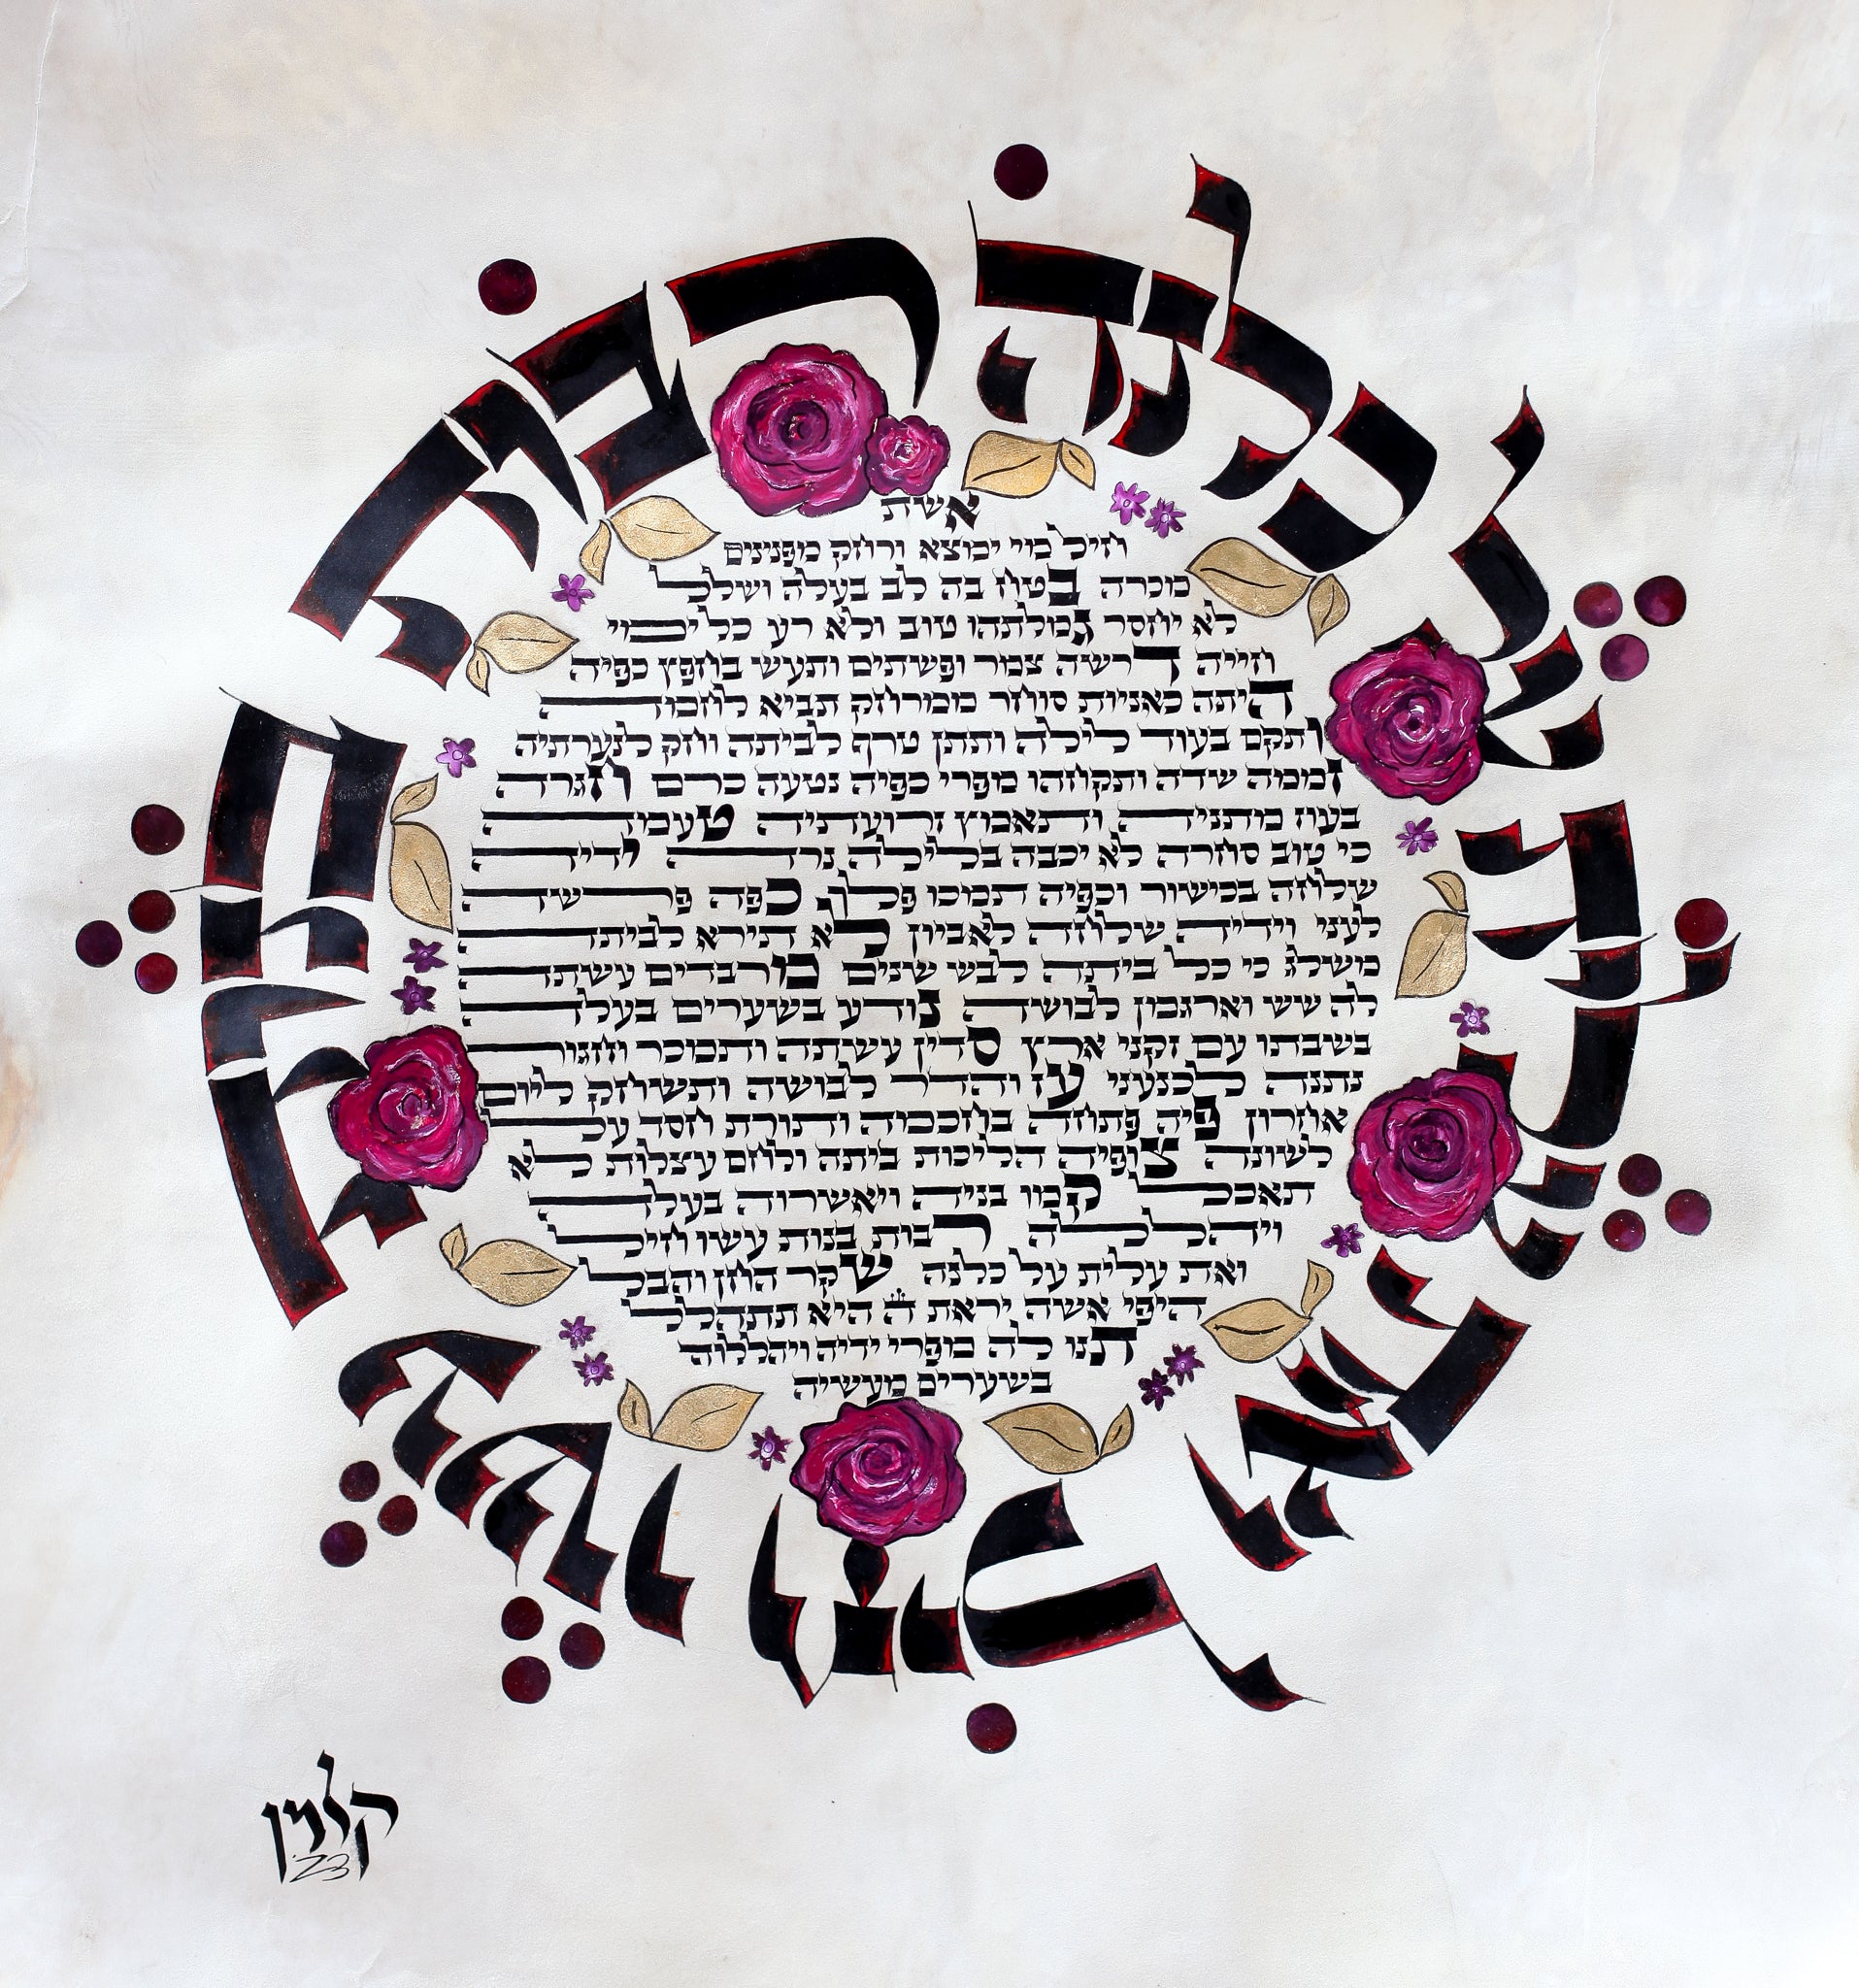 רבות בנות עשו חיל ואת עלית על כלנה
אשת
חיל מי ימצא ורחק מפנינים
מכרה בטח בה לב בעלה ושלל
לא יחסר גמלתהו טוב ולא רע כל ימי
חייה דרשה צמר ופשתים ותעש בחפץ כפיה
היתה כאניות סוחר ממרחק תביא לחמה
ותקם בעוד לילה ותתן טרף לביתה וחק לנערתיה
זממה שדה ותקחהו מפרי כפיה נטעה כרם חגרה
בעוז מתניה ותאמץ זרועתיה טעמה
כי טוב סחרה לא יכבה בלילה נרה ידיה
שלחה בכישור וכפיה תמכו פלך כפה פרשה
לעני וידיה שלחה לאביון לא תירא לביתה
משלג כי כל ביתה לבש שנים מרבדים עשתה
לה שש וארגמן לבושה נודע בשערים בעלה
בשבתו עם זקני ארץ סדין עשתה ותמכר וחגור
נתנה לכנעני עז והדר לבושה ותשחק ליום
אחרון פיה פתחה בחכמה ותורת חסד על
לשונה צופיה הליכות ביתה ולחם עצלות לא
תאכל קמו בניה ויאשרוה בעלה
ויהללה רבות בנות עשו חיל
ואת עלית על כלנה שקר החן והבל
היפי אשה יראת ה היא תתהלל
תנו לה מפרי ידיה ויהללוה
בשערים מעשיה
קלמן
'23